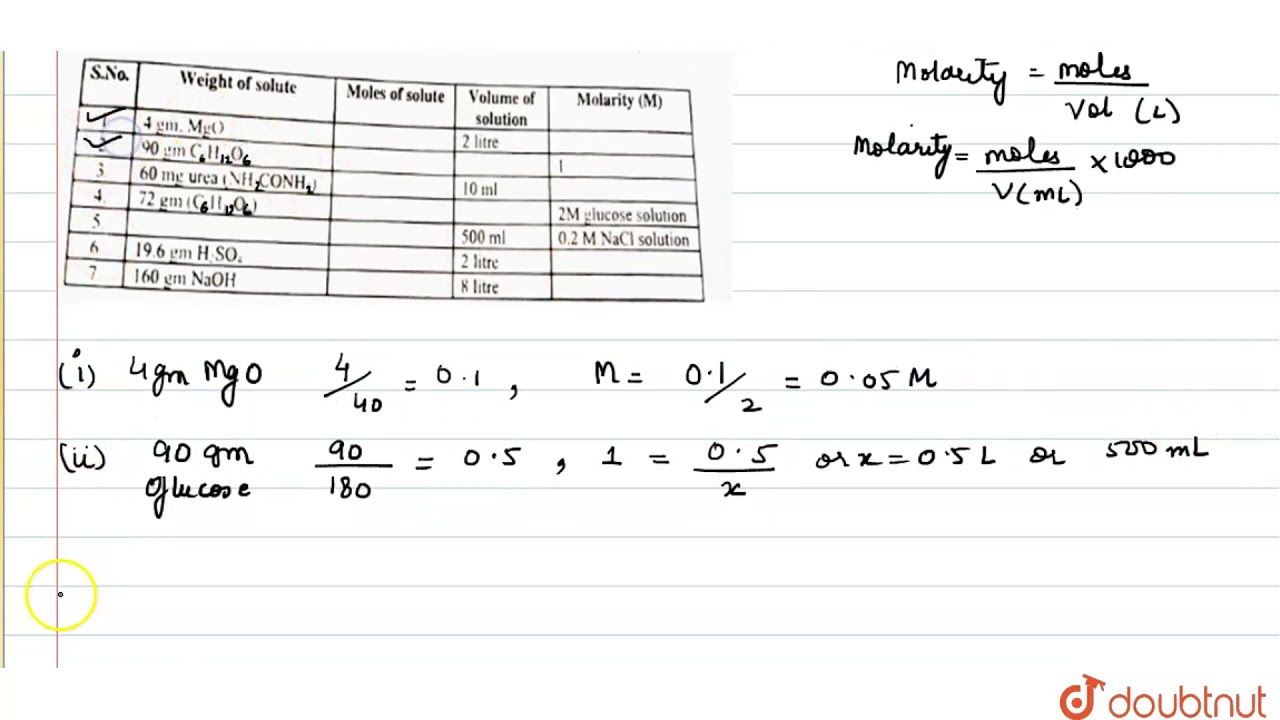 S.No. Weight of solute Moles of solute Volume of solution Molarity (M)
1 4 gm. MgO 2 litre
2 90 gm C6H12O6 1
3. 60 mg urea (NH2CONH2) 10 ml
4. 72 gm (C6H12O6) 2M glucose solution
5 500 ml 0.2 M NaCl solution
6 19.6 gm H2SO4 2 litre
7 160 gm NaOH 8 litre
Molarity = moles / Vol (L)
Molarity = moles / V(mL) × 1000
(i) 4gm MgO 4/40 = 0.1 , M = 0.1/2 = 0.05 M
(ii) 90 gm glucose 90/180 = 0.5 , 1 = 0.5/x or x = 0.5 L or 500 mL
doubtnut